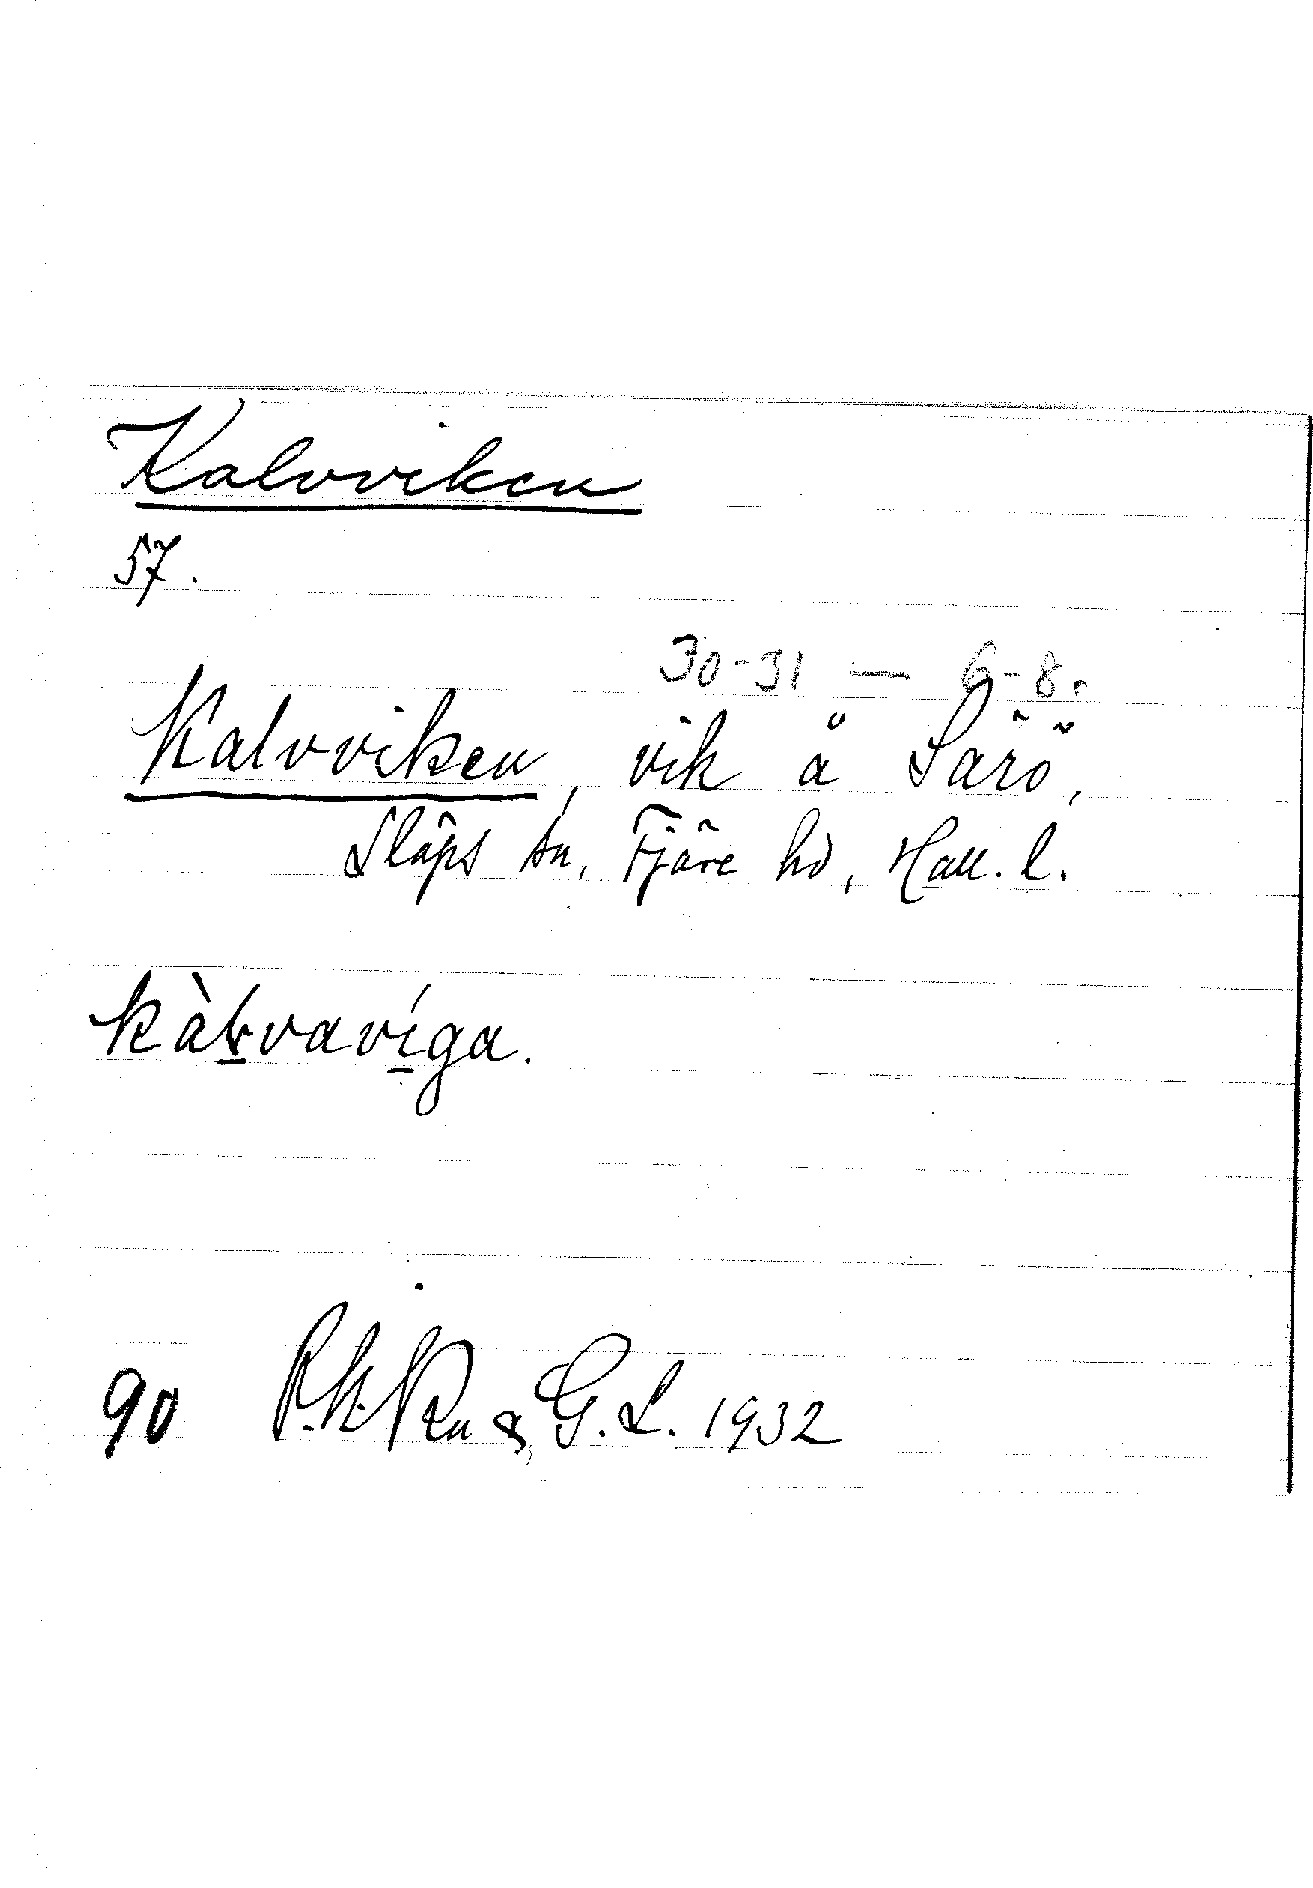 Kalvviken
57.
30-31 — 6-8.
Kalvviken, vik å Särö,
Släps sn, Fjäre hd, Hall. l.
kàlvavíga.
90 & G. L. 1932